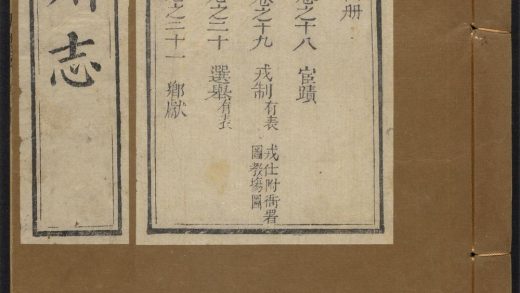 冊
卷之十八 宦蹟
卷之十九 戎制有表 戎仕附衙署圖教塲圖
卷之二十 選舉有表
之二十一 鄉獻
志